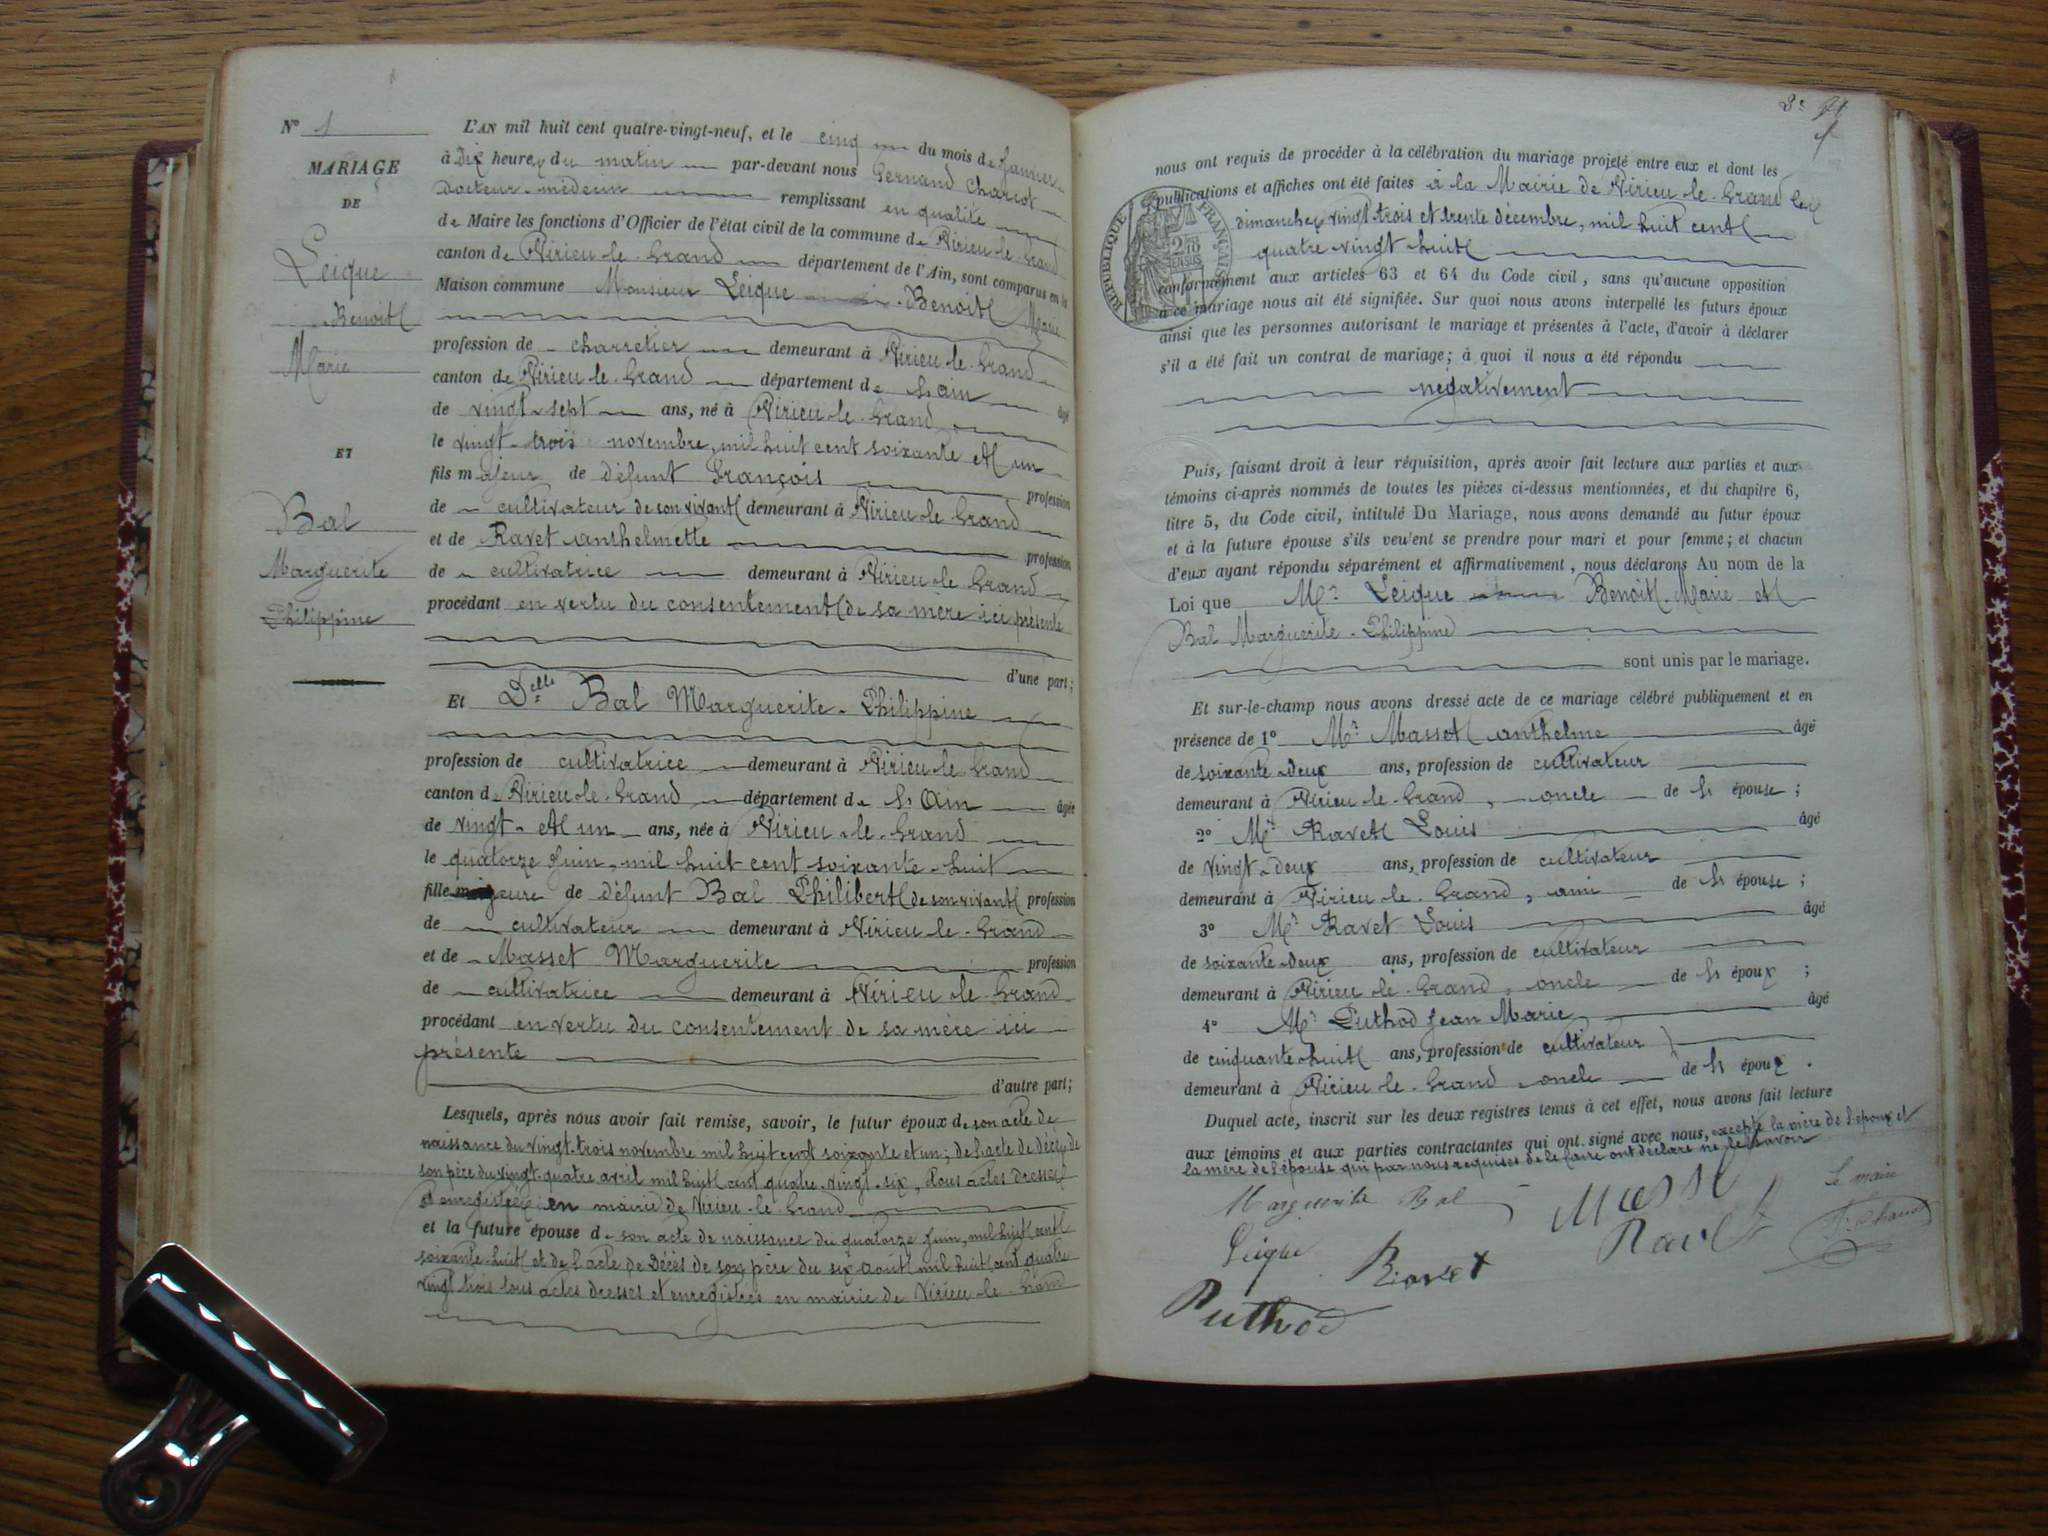 N° 1
MARIAGE
DE
Leique
Benoit
Marie
ET
Bal
Marguerite
Philippine
L'AN mil huit cent quatre-vingt-neuf, et le cinq du mois de Janvier
à Dix heures du matin par-devant nous Fernand Charcot
Docteur-médecin remplissant en qualité
de Maire les fonctions d'Officier de l'état civil de la commune de Virieu-le-Grand
canton de Virieu-le-Grand département de l'Ain, sont comparus en la
Maison commune Monsieur Leique Benoit Marie
profession de charretier demeurant à Virieu-le-Grand
canton de Virieu-le-Grand département de l'ain âgé
de vingt-sept ans, né à Virieu-le-Grand
le vingt-trois novembre, mil huit cent soixante et un
fils majeur de défunt François profession
de cultivateur de son vivant demeurant à Virieu-le-Grand
et de Ravet anthelmette profession
de cultivatrice demeurant à Virieu-le-Grand
procédant en vertu du consentement de sa mère ici présente
d'une part;
Et Delle Bal Marguerite-Philippine
profession de cultivatrice demeurant à Virieu-le-Grand
canton de Virieu-le-Grand département de l'Ain âgée
de vingt-et un ans, née à Virieu-le-Grand
le quatorze Juin, mil huit cent soixante-huit
fille majeure de défunt Bal Philibert de son vivant profession
de cultivateur demeurant à Virieu-le-Grand
et de Masset Marguerite profession
de cultivatrice demeurant à Virieu-le-Grand
procédant en vertu du consentement de sa mère ici
présente
d'autre part;
Lesquels, après nous avoir fait remise, savoir, le futur époux de son acte de
naissance du vingt-trois novembre mil huit cent soixante et un; de l'acte de décès de
son père du vingt-quatre avril mil huit cent quatre-vingt-six, tous actes dressés
et enregistrés en mairie de Virieu-le-Grand
et la future épouse de son acte de naissance du quatorze Juin, mil huit cent
soixante-huit et de l'acte de Décès de son père du six août mil huit cent quatre
vingt trois tous actes dressés et enregistrés en mairie de Virieu-le-Grand
nous ont requis de procéder à la célébration du mariage projeté entre eux et dont les
publications et affiches ont été faites à la Mairie de Virieu-le-Grand les
dimanches vingt trois et trente décembre, mil huit cent
quatre-vingt-huit
RÉPUBLIQUE FRANÇAISE
conformément aux articles 63 et 64 du Code civil, sans qu'aucune opposition
à ce mariage nous ait été signifiée. Sur quoi nous avons interpellé les futurs époux
ainsi que les personnes autorisant le mariage et présentes à l'acte, d'avoir à déclarer
s'il a été fait un contrat de mariage; à quoi il nous a été répondu
négativement
Puis, faisant droit à leur réquisition, après avoir fait lecture aux parties et aux
témoins ci-après nommés de toutes les pièces ci-dessus mentionnées, et du chapitre 6,
titre 5, du Code civil, intitulé Du Mariage, nous avons demandé au futur époux
et à la future épouse s'ils veulent se prendre pour mari et pour femme; et chacun
d'eux ayant répondu séparément et affirmativement, nous déclarons Au nom de la
Loi que Mr Leique Benoit Marie et
Bal Marguerite-Philippine
sont unis par le mariage.
Et sur-le-champ nous avons dressé acte de ce mariage célébré publiquement et en
présence de 1° Mr Masset anthelme âgé
de soixante-deux ans, profession de cultivateur
demeurant à Virieu-le-Grand, oncle de l'épouse;
2° Mr Ravet Louis âgé
de vingt-deux ans, profession de cultivateur
demeurant à Virieu-le-Grand, ami de l'épouse;
3° Mr Ravet Louis âgé
de soixante-deux ans, profession de cultivateur
demeurant à Virieu-le-Grand, oncle de l'époux;
4° Mr Puthod Jean Marie âgé
de cinquante-huit ans, profession de cultivateur
demeurant à Virieu-le-Grand oncle de l'époux.
Duquel acte, inscrit sur les deux registres tenus à cet effet, nous avons fait lecture
aux témoins et aux parties contractantes qui ont signé avec nous, excepté la mère de l'époux et
la mère de l'épouse qui par nous requises de le faire ont déclaré ne le savoir
Marguerite Bal Masset Le maire
Leique Ravet Ravet
Puthod